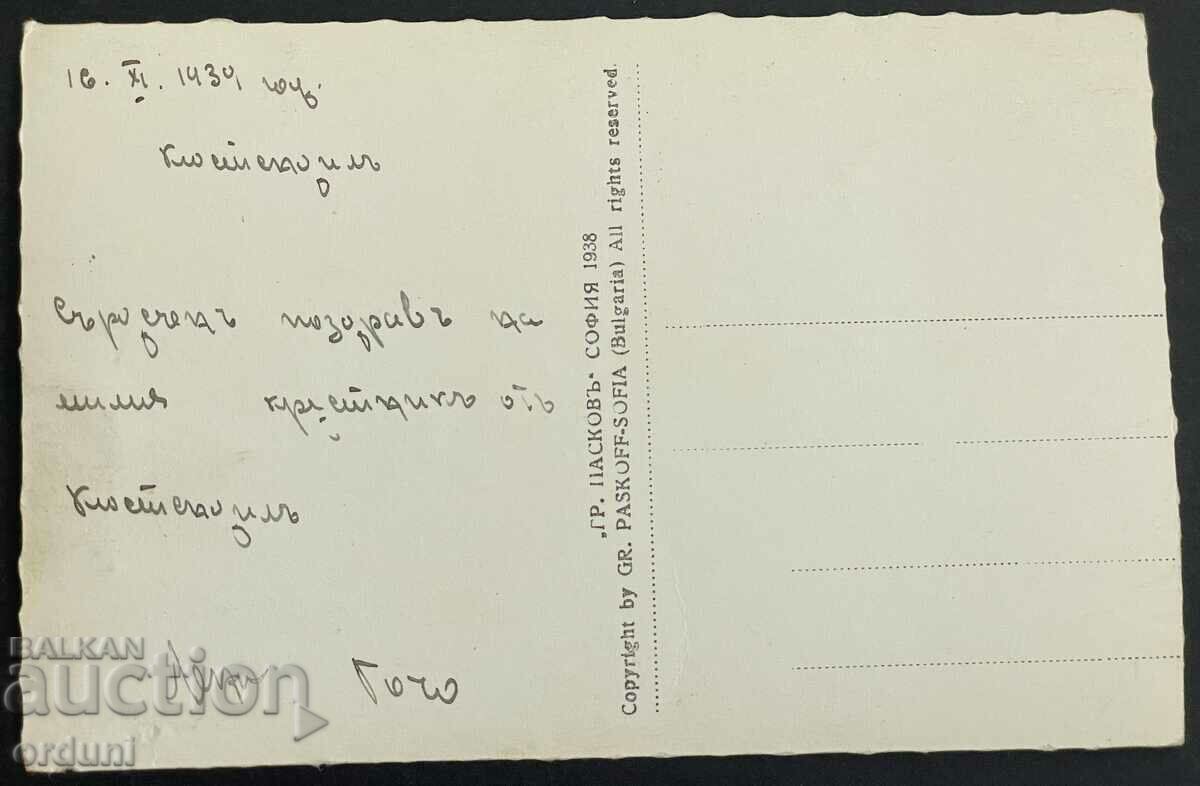 16. XI. 1939 год.
Кюстендилъ
Сърдеченъ поздравъ на
милия кръстникъ отъ
Кюстендилъ
Гочо
„ГР. ПАСКОВЪ" СОФИЯ 1938
Copyright by GR. PASKOFF-SOFIA (Bulgaria) All rights reserved.
BALKAN
auction
orduni